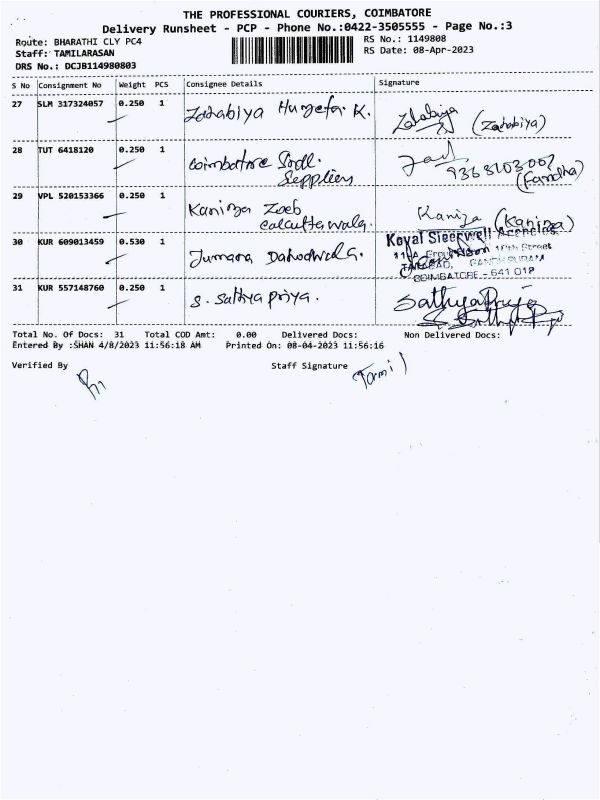 THE PROFESSIONAL COURIERS, COIMBATORE
Delivery Runsheet - PCP - Phone No.:0422-3505555 - Page No.:3
Route: BHARATHI CLY PC4 RS No.: 1149808
Staff: TAMILARASAN RS Date: 08-Apr-2023
DRS No.: DCJB114980803
S No Consignment No Weight PCS Consignee Details Signature
27 SLM 317324057 0.250 1 Zahabiya Huzefa. K. Zahabiya (Zahabiya)
28 TUT 6418120 0.250 1 Coimbatore
Suppliers 9363103007
(Faridha)
29 VPL 520153366 0.250 1 Kaniza Zoeb Kaniza (Kaniza)
calcuttawala.
30 KUR 609013459 0.530 1 Jumana Dahodwala. Koyal Steerwell Agencies
10th Street
TATABAD, GANDHIPURAM
COIMBATORE - 641 012
31 KUR 557148760 0.250 1 S. Sathyapriya. Sathyapriya
Total No. Of Docs: 31 Total COD Amt: 0.00 Delivered Docs: Non Delivered Docs:
Entered By :SHAN 4/8/2023 11:56:18 AM Printed On: 08-04-2023 11:56:16
Verified By Staff Signature Tamil